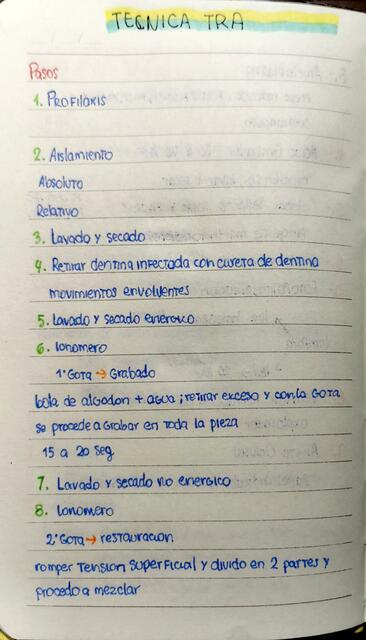 TECNICA TRA
Pasos
1. PROFILAXIS
2. Aislamiento
Absoluto
Relativo
3. Lavado y secado
4. Retirar dentina infectada con cureta de dentina
movimientos envolventes
5. Lavado y secado energico
6. Ionomero
1° Gota → Grabado
bola de algodon + agua ; retirar exceso y con la gota
se procede a Grabar en toda la pieza
15 a 20 seg
7. Lavado y secado no energico
8. Ionomero
2° Gota → restauracion
romper Tension superficial y divido en 2 partes y
procedo a mezclar